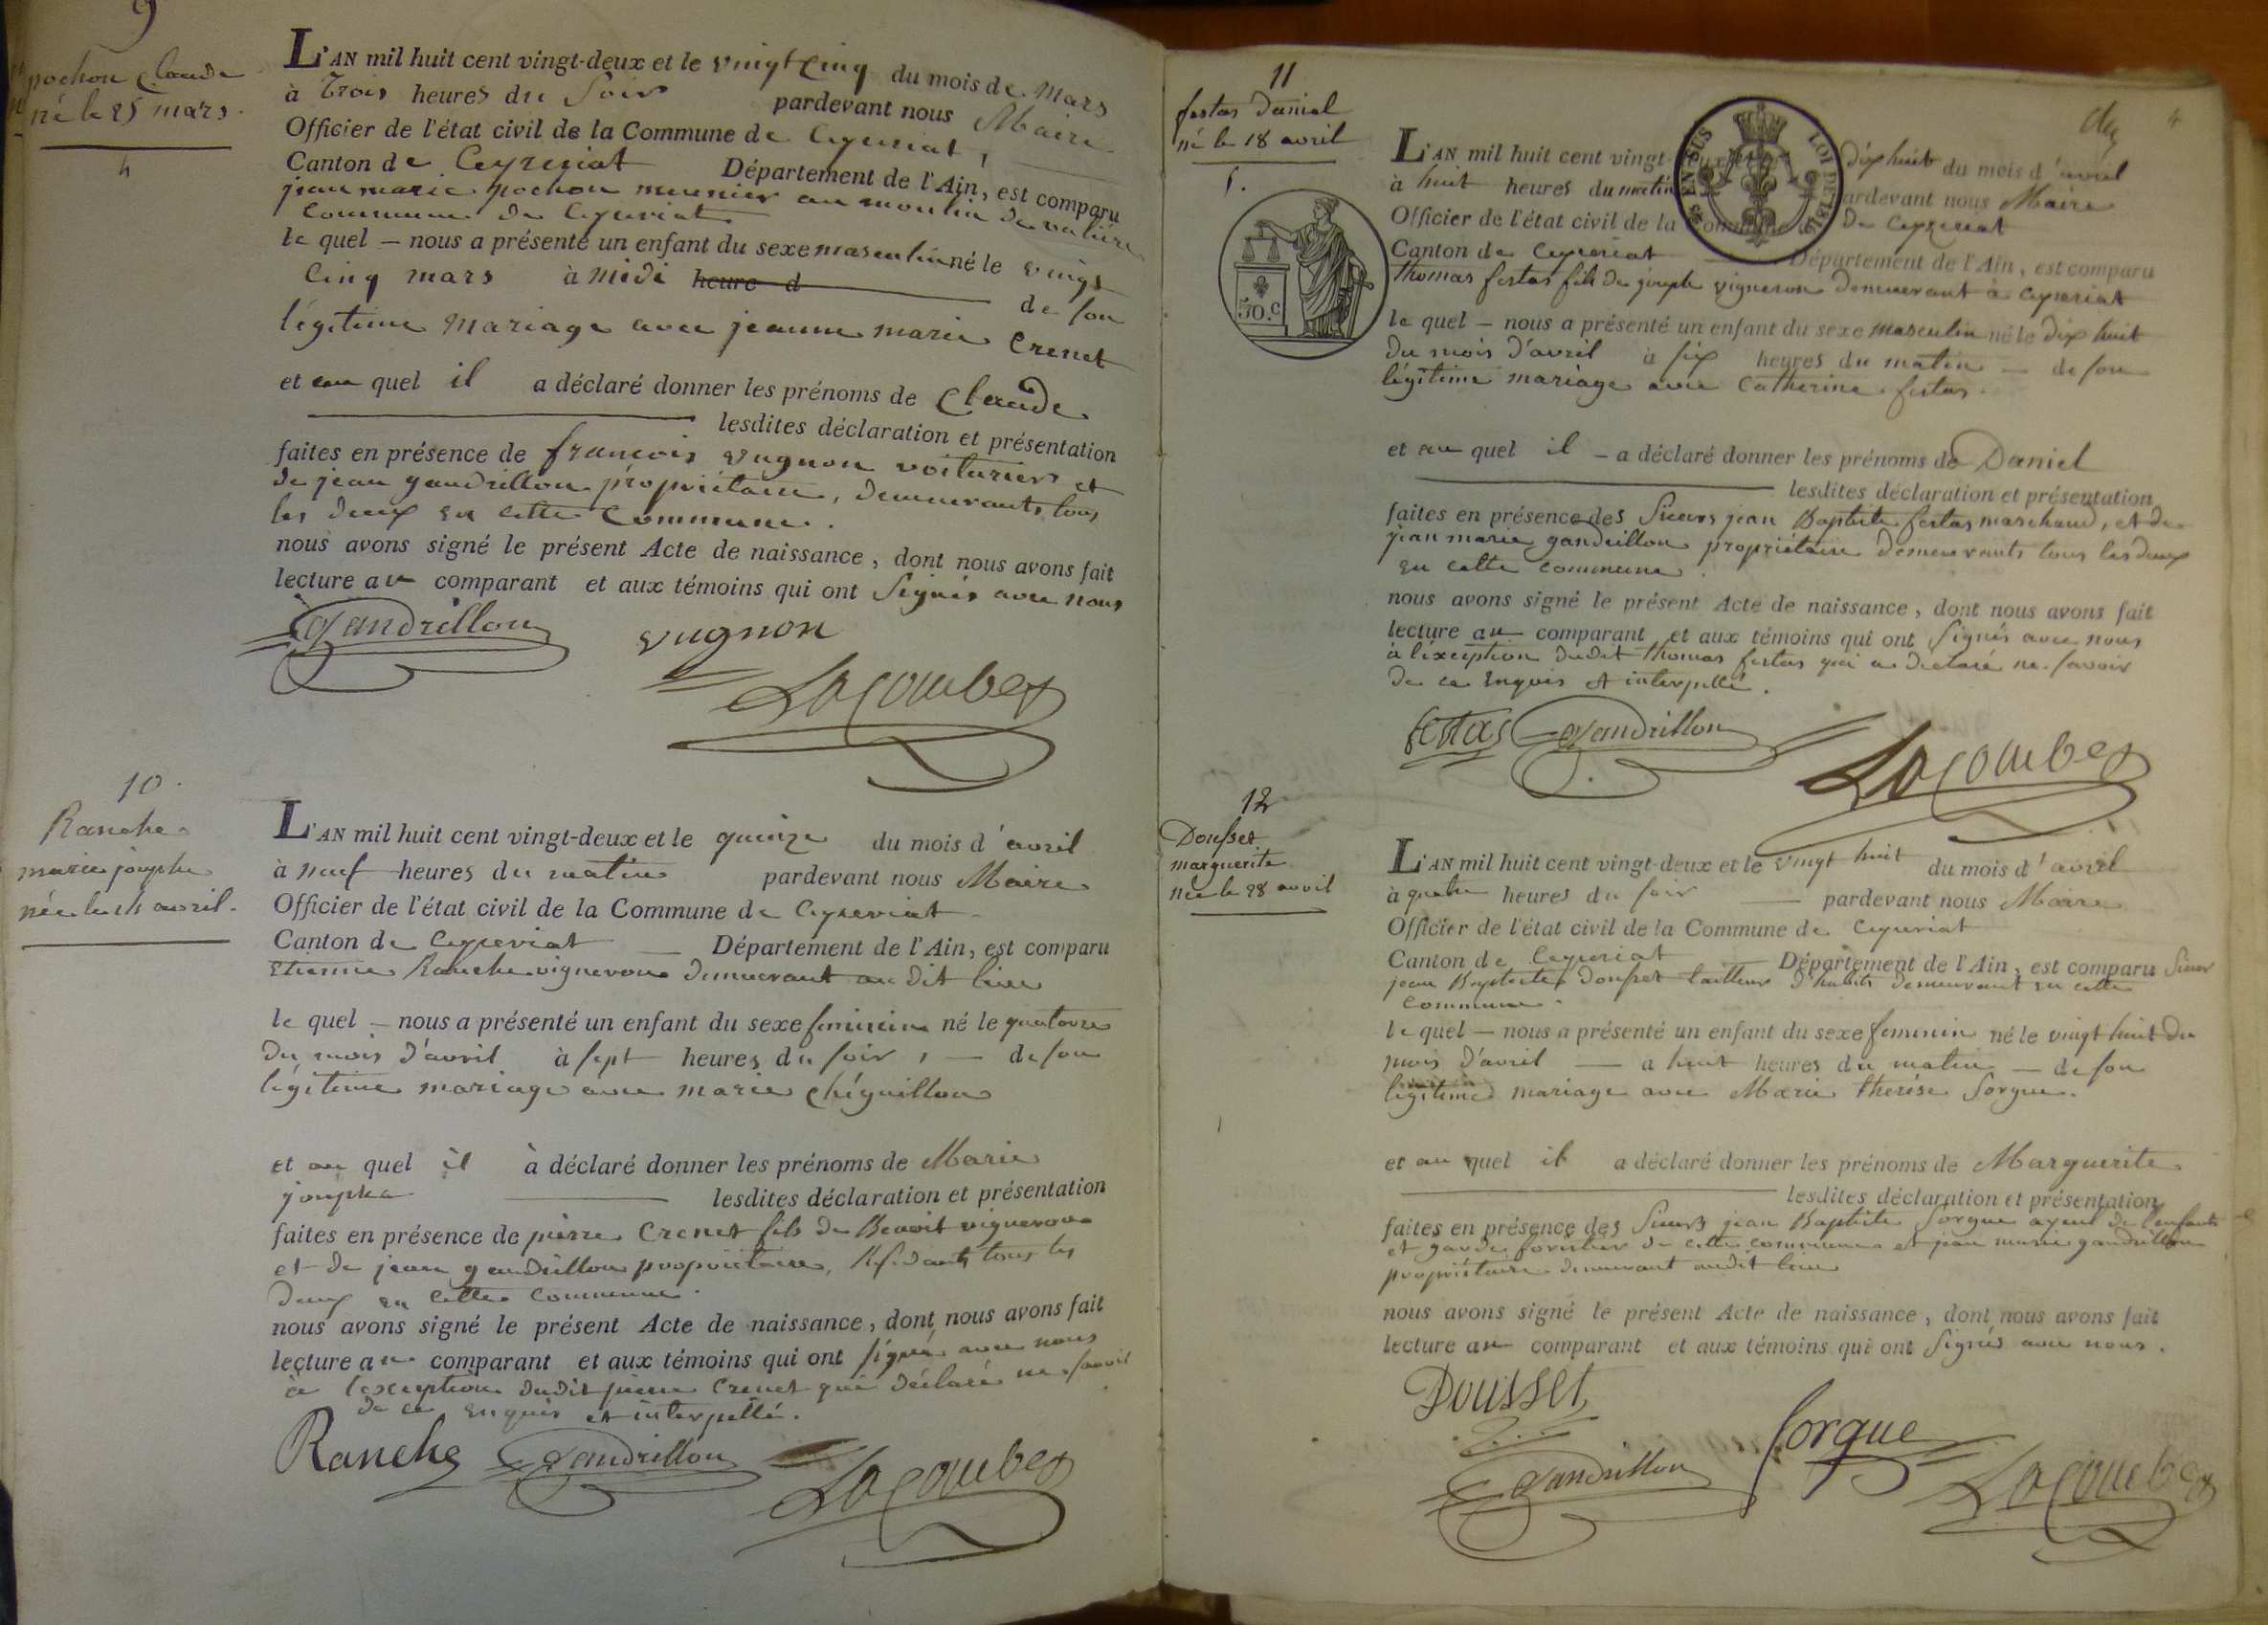 9
pochon Claude
né le 25 mars.
4
L'AN mil huit cent vingt-deux et le vingt cinq du mois de Mars
à Trois heures du Soir pardevant nous Maire
Officier de l'état civil de la Commune de Ceyzeriat,
Canton de Ceyzeriat Département de l'Ain, est comparu
jean marie pochon meunier au moulin de valiere
Commune de Ceyzeriat
le quel – nous a présenté un enfant du sexe masculin né le vingt
Cinq mars à Midi heure d
de son
légitime Mariage avec jeanne marie Crenet
et au quel il a déclaré donner les prénoms de Claude
lesdites déclaration et présentation
faites en présence de francois vugnon voiturier et
de jean gandrillon propriétaire, demeurants tous
les deux en cette Commune.
nous avons signé le présent Acte de naissance, dont nous avons fait
lecture au comparant et aux témoins qui ont Signés avec nous
Gandrillon
vugnon
Lacombe
10.
Ranche
marie josephe
née le 14 avril.
L'AN mil huit cent vingt-deux et le quinze du mois d'avril
à neuf heures du matin pardevant nous Maire
Officier de l'état civil de la Commune de Ceyzeriat
Canton de Ceyzeriat Département de l'Ain, est comparu
Etienne Ranche vigneron demeurant au dit lieu
le quel – nous a présenté un enfant du sexe feminin né le quatorze
du mois d'avril à sept heures du soir, – de son
légitime mariage avec marie Chéguillon
et au quel il à déclaré donner les prénoms de Marie
josephe lesdites déclaration et présentation
faites en présence de pierre Crenet fils de Benoit vigneron
et de jean gandrillon propriétaire, Résidants tous les
deux en cette Commune.
nous avons signé le présent Acte de naissance, dont nous avons fait
lecture au comparant et aux témoins qui ont signé avec nous
à l'exception dudit pierre Crenet qui déclaré ne savoir
de ce enquis et interpellé.
Ranche
Gandrillon
Lacombe
11
festas Daniel
né le 18 avril
1.
50.c
EN SUS
LOI DE 1816
4
L'AN mil huit cent vingt-deux dix huit du mois d'avril
à huit heures du matin pardevant nous Maire
Officier de l'état civil de la Commune de Ceyzeriat
Canton de Ceyzeriat Département de l'Ain, est comparu
thomas festas fils de joseph vigneron demeurant à Ceyzeriat
le quel – nous a présenté un enfant du sexe masculin né le dix huit
du mois d'avril à six heures du matin – de son
légitime mariage avec Catherine festas.
et au quel il – a déclaré donner les prénoms de Daniel
lesdites déclaration et présentation
faites en présence des Sieurs jean Baptiste festas marchand, et de
jean marie gandrillon propriétaire demeurants tous les deux
en cette commune.
nous avons signé le présent Acte de naissance, dont nous avons fait
lecture au comparant et aux témoins qui ont Signés avec nous
à l'exception dudit thomas festas qui a déclaré ne savoir
de ce Enquis et interpellé.
festas
Gandrillon
Lacombe
12
Dousset
marguerite
née le 28 avril
L'AN mil huit cent vingt-deux et le vingt huit du mois d'avril
à quatre heures du soir pardevant nous Maire
Officier de l'état civil de la Commune de Ceyzeriat
Canton de Ceyzeriat Département de l'Ain, est comparu Sieur
jean Baptiste Dousset tailleur d'habits demeurant en cette
Commune.
le quel – nous a présenté un enfant du sexe feminin né le vingt huit du
mois d'avril à huit heures du matin – de son
légitime mariage avec Marie therése Sorgue.
et au quel il a déclaré donner les prénoms de Marguerite
lesdites déclaration et présentation
faites en présence des Sieurs jean Baptiste Sorgue ayeul de l'enfant
et garde forestier de cette commune et jean marie gandrillon
propriétaire demeurant audit lieu
nous avons signé le présent Acte de naissance, dont nous avons fait
lecture au comparant et aux témoins qui ont Signés avec nous.
Dousset
Sorgue
Gandrillon
Lacombe